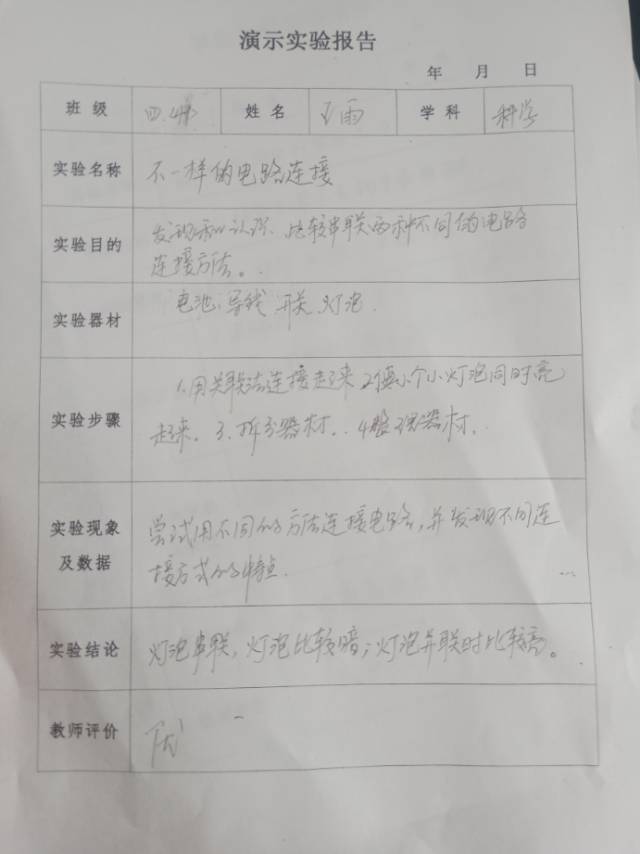 演示实验报告
年 月 日
班级 四. 姓名 王雨 学科 科学
实验名称 不一样的电路连接
实验目的 发现和认识、比较串联两种不同的电路
连接方法。
实验器材 电池 导线 开关 灯泡
实验步骤 1.用关联法连接起来 2 个小灯泡同时亮
起来. 3.拆分器材. 4整理器材.
实验现象及数据 尝试用不同的方法连接电路,并发现不同连
接方式的特点.
实验结论 灯泡串联,灯泡比较暗;灯泡并联时比较亮。
教师评价 优